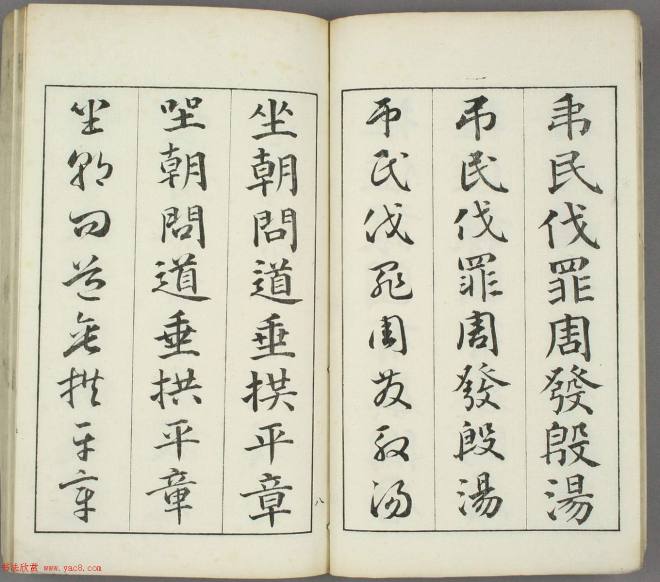 弔民伐罪周發殷湯
弔民伐罪周發殷湯
弔民伐罪周發殷湯
坐朝問道垂拱平章
坐朝問道垂拱平章
坐朝問道垂拱平章
八
书法欣赏 www.yac8.com